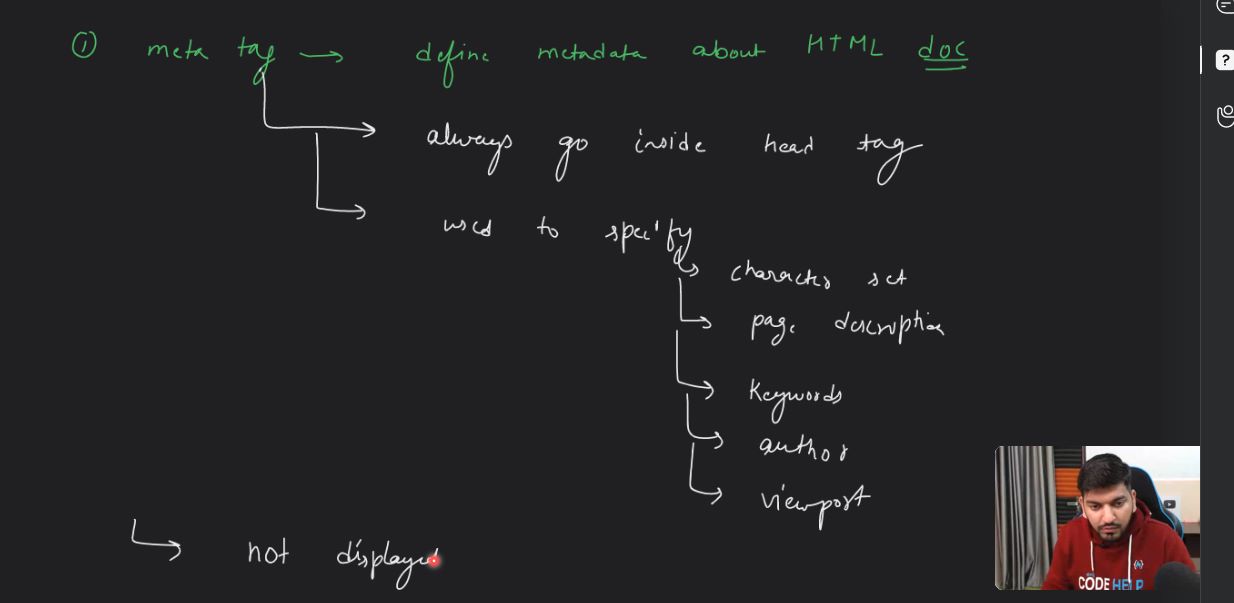 ① meta tag → define metadata about HTML doc
always go inside head tag
used to specify
character set
page description
Keywords
author
viewport
not displayed
CODE HELP
?